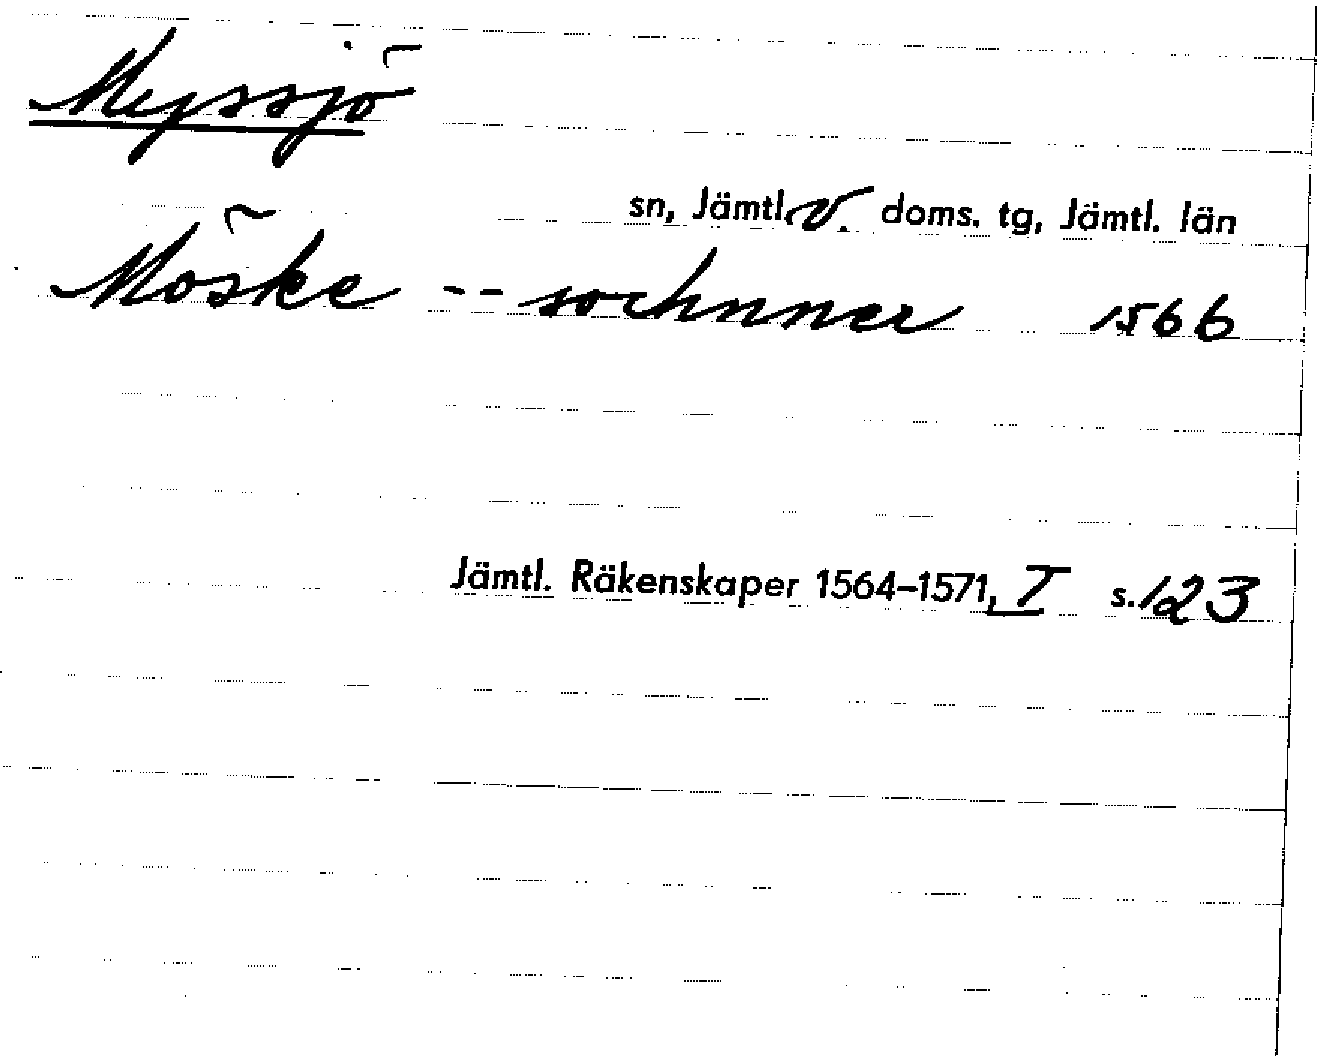 Myssjö
sn, Jämtl. v. doms. tg, Jämtl. län
Möske -- sochnner 1566
Jämtl. Räkenskaper 1564-1571, I s. 123